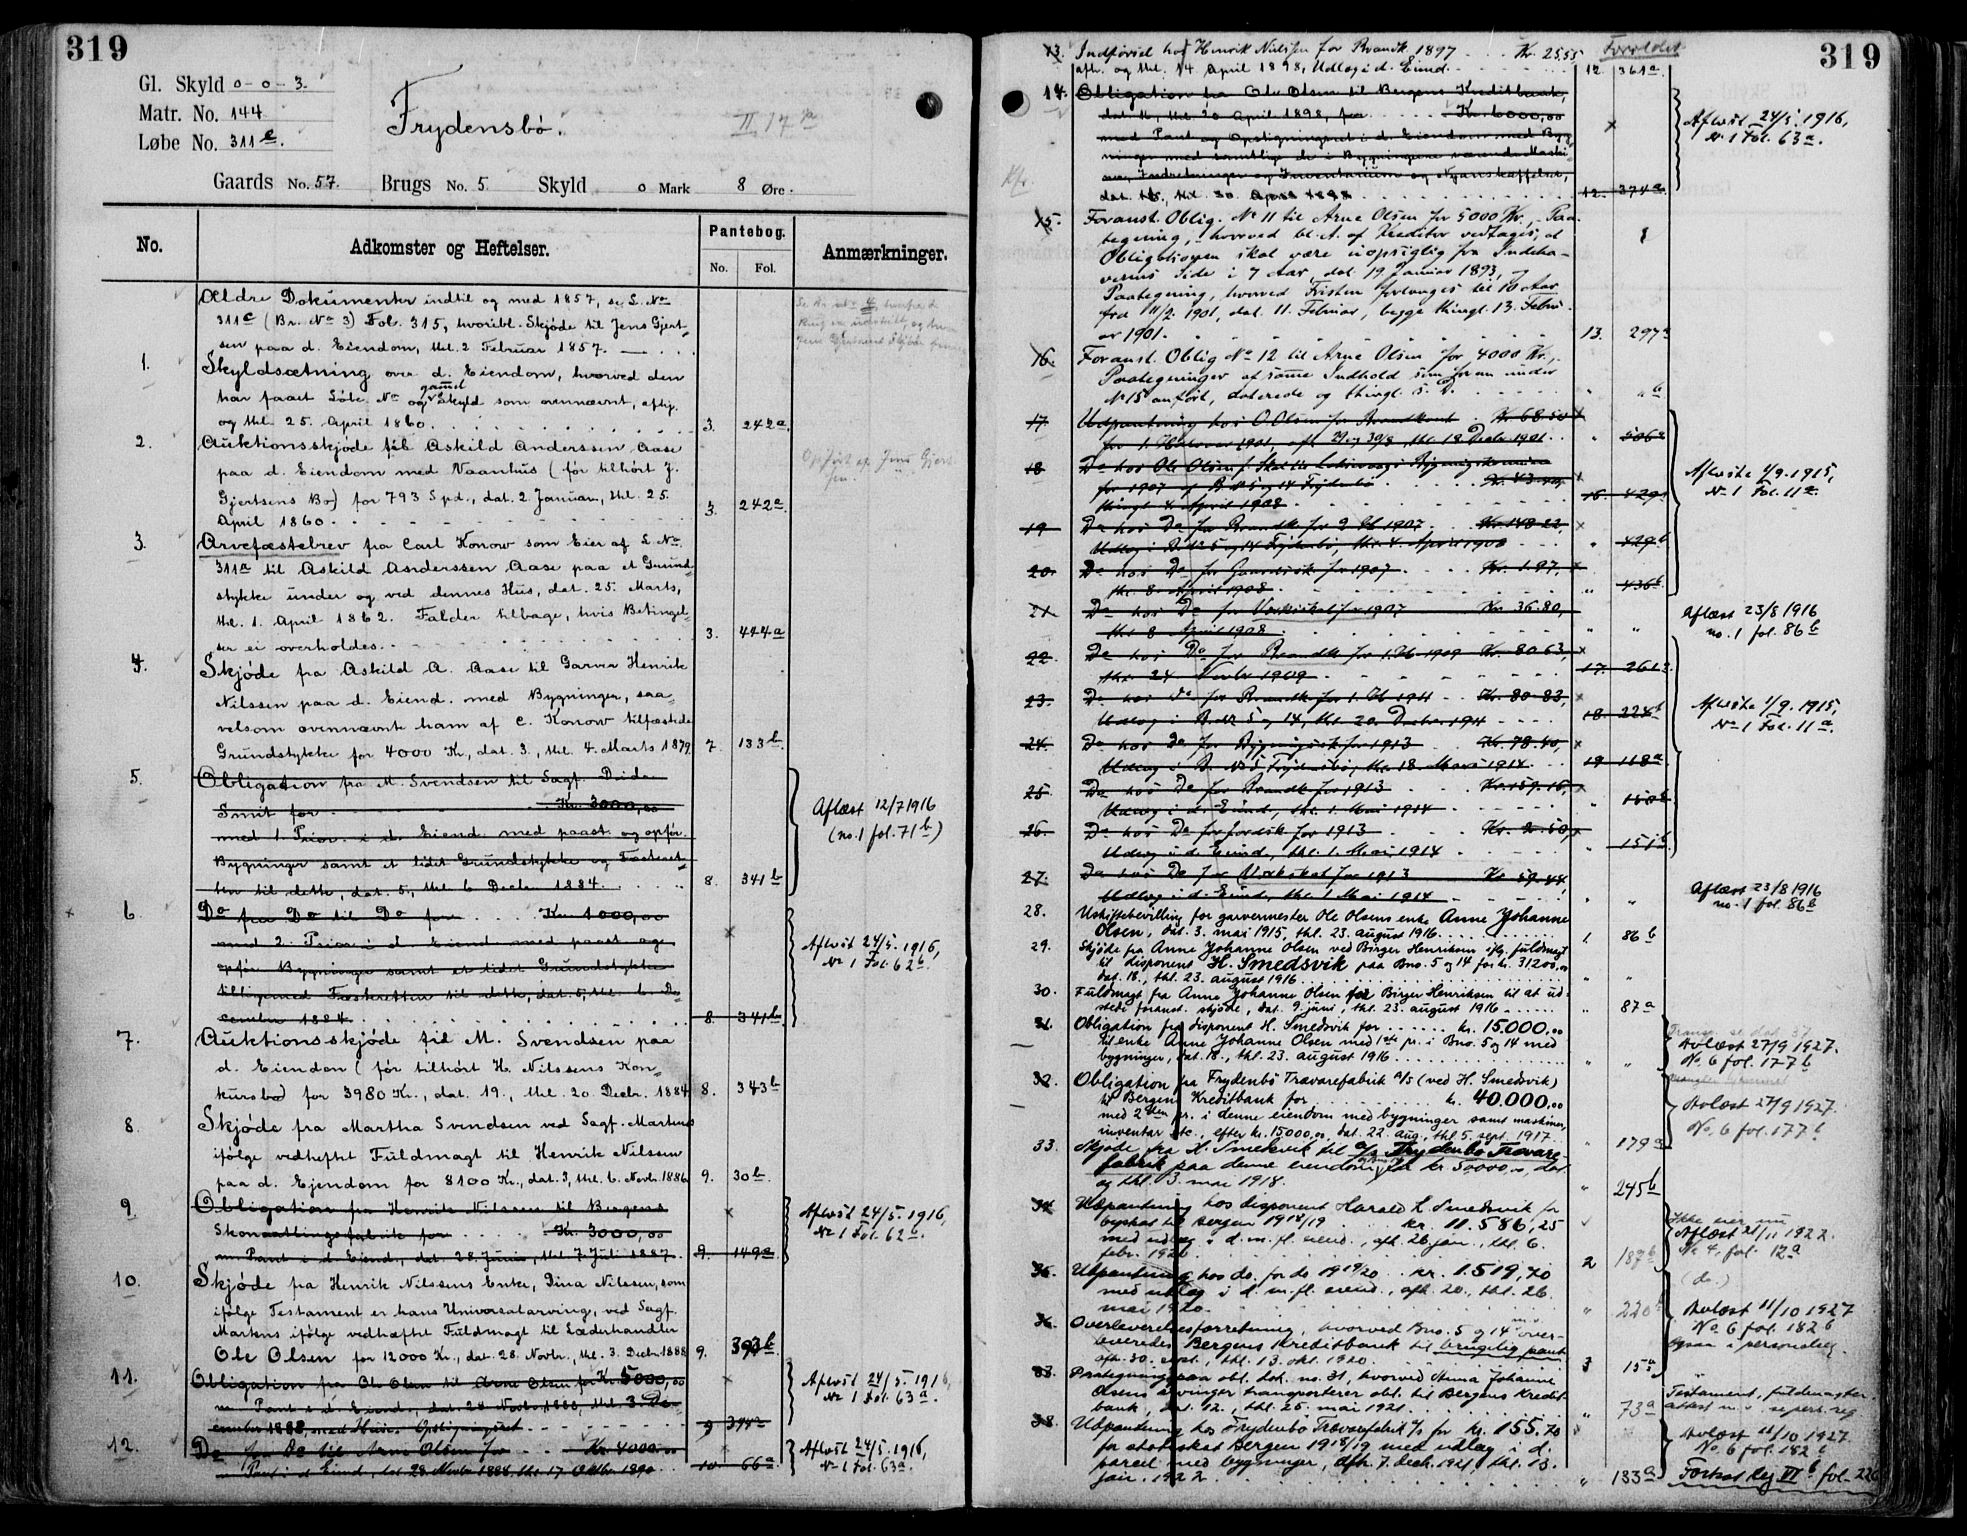 319
Gl. Skyld 0-0-3.
Matr. No. 144
Løbe No. 311e.
Frydensbö.
II 17a
Gaards No. 57. Brugs No. 5 Skyld 0 Mark 8 Øre.
No. Adkomster og Heftelser. Pantebog. No. Fol. Anmærkninger.
Ældre Dokumenter indtil og med 1857, se L. No
311c (Br. No 3) Fol. 315, hvoribl. Skjøde til Jens Gjert-
sen paa d. Eiendom, thl. 2 Februar 1857.
1. Skyldsætning over d. Eiendom, hvorved den
har faaet Löbe No og gammel Skyld som ovennævnt, afhj.
og thl. 25. April 1860. 3. 242a
2. Auktionsskjøde til Askild Anderssen Aase
paa d. Eiendom med Vaanhus (før tilhört J.
Gjertsens Bo) for 793 Spd., dat. 2 Januar, thl. 25.
April 1860. 3. 242a
3. Arvefæstebrev fra Carl Konow som Eier af L. No
311a til Askild Anderssen Aase paa et Grund-
stykke under og ved dennes Hus, dat. 25. Marts,
thl. 1. April 1862. Falder tilbage, hvis Betingel-
ser ei overholdes. 3. 444a
4. Skjøde fra Askild A. Aase til Garver Henrik
Nilssen paa d. Eiend. med Bygninger, saa-
velsom ovennævnte ham af C. Konow tilfæstede
Grundstykke for 4000 Kr., dat. 3., thl. 4. Marts 1879. 7. 133b
5. Obligation fra M. Svendsen til Sagf. Devide
Smit for Kr. 3000,00
med 1. Prior. i d. Eiend. med paast. og opför.
Bygninger samt et lidet Grundstykke og Fæsteret-
ten til dette, dat. 5, thl. 6 Decbr. 1884. 8. 341b
Aflæst 12/7 1916
(no. 1 fol. 71b)
6. Do fra Do til Do for Kr. 1000,00
med 2. Prior. i d. Eiend. med paast. og
opför. Bygninger samt et lidet Grundstykke
tilligemed Fæsteretten til dette, dat. 5, thl. 6. De-
cember 1884. 8. 341b
Aflæst 24/5. 1916,
No 1 Fol. 62b.
7. Auktionsskjøde til M. Svendsen paa
d. Eiendom (før tilhört H. Nilssens Kon-
kursbo) for 3980 Kr., dat. 19., thl. 20. Decbr. 1884 8. 343b
8. Skjøde fra Martha Svendsen ved Sagf. Martens
ifølge vedheftet Fuldmagt til Henrik Nilssen
paa d. Ejendom for 8100 Kr., dat. 3, thl. 6. Novbr. 1886 9. 30b
9. Obligation fra Henrik Nilssen til Bergens
Skomattingsfabrik for Kr. 3000,00
m. Pant i d. Eiend., dat. 28 Juni, thl. 7. Juli 1887. 9. 149a
Aflæst 24/5. 1916,
No 1 Fol. 62b.
10. Skjøde fra Henrik Nilssens Enke, Dina Nilssen, som
ifølge Testament er hans Universalarving, ved Sagf.
Martens ifølge vedhæftet Fuldmagt til Læderhandler
Ole Olsen for 12000 Kr., dat. 28. Novbr., thl. 3. Decbr. 1888 9. 393b
11. Obligation fra Ole Olsen til Arne Olsen for Kr. 5000,00
m. Pant i d. Eiend., dat. 28 Novbr. 1888, thl. 3. De-
cember 1888, med Huses Opsigningsret. 9 394a
Aflæst 24/5. 1916,
No 1 Fol. 63a
12. Do fra do til Arne Olsen for Kr. 4000,00
Pant i d. Eiend., dat. 28 Novbr. 1888, thl. 17 Oktbr. 1890 10 66a
Aflæst 24/5. 1916,
No 1 Fol. 63a.
319
13. Indførsel hos Henrik Nielsen for Brandk. 1897 Kr. 25,55 Forældet
afh. og thl. 14 April 1898, Udlæg i d. Eiend. 12 361a
14. Obligation fra Ole Olsen til Bergens Kreditbank,
dat. 16, thl. 20 April 1898, for Kr. 6000,00
med Pant og Opsigningsret i d. Eiendom med Byg-
ninger med samtlige de i Bygningerne værende Maski-
ner, Indretninger og Inventarium og Nyanskaffelser,
dat. 16., thl. 20. April 1898 12. 374b
Aflæst 24/5. 1916,
No 1 Fol. 63a.
15. Foranst. Oblig. No 11 til Arne Olsen for 5000 Kr., Paa-
tegning, hvorved bl. A. af Kreditor vedtages, at
Obligationen skal være uopsigelig fra Indeha-
verens Side i 7 Aar, dat. 19. Januar 1893, og
Paategning, hvorved Fristen forlænges til 10 Aar
fra 11/2 1901, dat. 11. Februar, begge thingl. 13. Febru-
ar 1901. 13. 297a
16. Foranst. Oblig No 12 til Arne Olsen for 4000 Kr.,
Paategninger af samme Indhold som foran under
No 15 anfört, daterede og thingl. s. D. " " b
17 Udpantning hos O. Olsen for Brandkont. Kr. 68,50
for 1. Halvaar 1901, afh. 29 og 30/8, thl. 18 Decbr 1901. " 506a
18 Do hos Ole Olsen f. Skat til Bygningskommission
for 1907 af B. No 5 og 14 Frydenbö Kr. 43,44
thingl. 4. April 1908 15. 429b
19 Do hos Do for Brandk. for 2. Hb 1907. Kr. 148,22
Udlæg i B. No 5 og 14 Frydenbö, thl. 4. April 1908 " 429b
Aflæste 1/9. 1915,
No 1 Fol. 11a.
20. Do hos Do for Gaardsk. for 1907 Kr. 1,97,
thl. 8 April 1908. " 436b
21 Do hos Do for Veiskat for 1907 Kr. 36,80,
thl. 8 April 1908. " "
Aflæst 23/8 1916
no. 1 fol. 86b
22. Do hos Do for Brandk. for 1. Hb 1909 Kr. 80,63,
thl. 24 Novbr 1909 17. 261a
23. Do hos do for Brandk. for 1. Hb 1911 Kr. 80,83,
Udlæg i B. No 5 og 14, thl. 20. Decbr 1911 18. 224b
24. Do hos Do for Bygningssk. for 1913 Kr. 78,40,
Udlæg i B. No 5 Frydensbö, thl. 18. Mars 1914 19 118a
25. Do hos Do for Brandk for 1913 Kr. 159,16,
Udlæg i d. Eiend., thl. 1. Mai 1914 " 150b
26. Do hos Do for Jordsk for 1913 Kr. 2,50,
Udlæg i d. Eiend., thl. 1. Mai 1914 " 151b
Aflæste 1/9. 1915,
No 1 Fol. 11a.
27. Do hos Do for Veiskat for 1913 Kr. 59,44,
Udlæg i d. Eiend., thl. 1 Mai 1914 " "
Aflæst 23/8 1916
no. 1 fol. 86b
28. Uskiftebevilling for garvermester Ole Olsens enke Anne Johanne
Olsen, dat. 3. mai 1915, thl. 23. august 1916. 1. 86b
29. Skjøde fra Anne Johanne Olsen ved Birger Henriksen iflg. fuldmagt
til disponent H. Smedsvik paa Bno. 5 og 14 for kr. 31200,00
dat. 18., thl. 23. august 1916 " "
30. Fuldmagt fra Anne Johanne Olsen for Birger Henriksen til at ud-
stede foranst. skjøde, dat. 9. juni, thl. 23. august 1916 " 87a
31. Obligation fra disponent H. Smedsvik for kr. 15.000,00
til enke Anne Johanne Olsen med 1ste pr. i Bno. 5 og 14 med
bygninger, dat. 18., thl. 23. august 1916 " "
Avlæst 27/9 1927.
No. 6 fol. 177b
32. Obligation fra Frydenbö Trævarefabrik A/S (ved H. Smedsvik)
til Bergens Kreditbank for kr. 40.000,00
med 2den pr. i denne eiendom med bygninger samt maskiner,
inventar etc., efter kr. 15000,00, dat. 22. aug., thl. 5. sept. 1917. " 179a
Avlæst 27/9 1927.
No. 6 fol. 177b
33. Skjøde fra H. Smedsvik til A/S Frydenbø Trævare-
fabrik paa denne eiendom for kr. 50000,00, dat
og thl. 3. mai 1918. " 245b
34. Utpantning hos disponent Harald L. Smedsvik for
byskat til Bergen 1918/19 kr. 11.586,25
med utlæg i d. m. fl. eiend., afh. 26 jan., thl. 6.
febr. 1920 2 187b
Ikke eier nu
Aflæst 21/11 1922.
No 4, fol. 12a
35. Utpantning hos do. for do 1919/20 kr. 1.519,70
med utlæg i d. m. fl. eiend., afh. 20., thl. 26.
mai 1920. " 220b
(do.)
36. Overleverelsesforretning, hvorved Bno. 5 og 14 m.v. over-
leveredes Bergens Kreditbank til brugelig pant
afh. 30. sept., thl. 13. okt. 1920. 3 15a
Avlæst 11/10 1927
No. 6 fol. 182b
37. Paategning paa obl. dok. no. 31, hvorved Anna Johanne
Olsens arvinger transporterer obl. til Bergens Kredit-
bank, dat. 12., thl. 25. mai 1921. " 73a
Testament, fuldmagter,
38. Utpantning hos Frydenbö Trævarefabrik A/S for kr. 155,70
for skat Bergen 1918/19 med utlæg i d.
parcel med bygninger, afh. 7. decb. 1921, thl. 13.
jan. 1922 " 133a
Avlæst 11/10 1927
No. 6 fol. 182b
Fortsat Reg VI b fol. 226